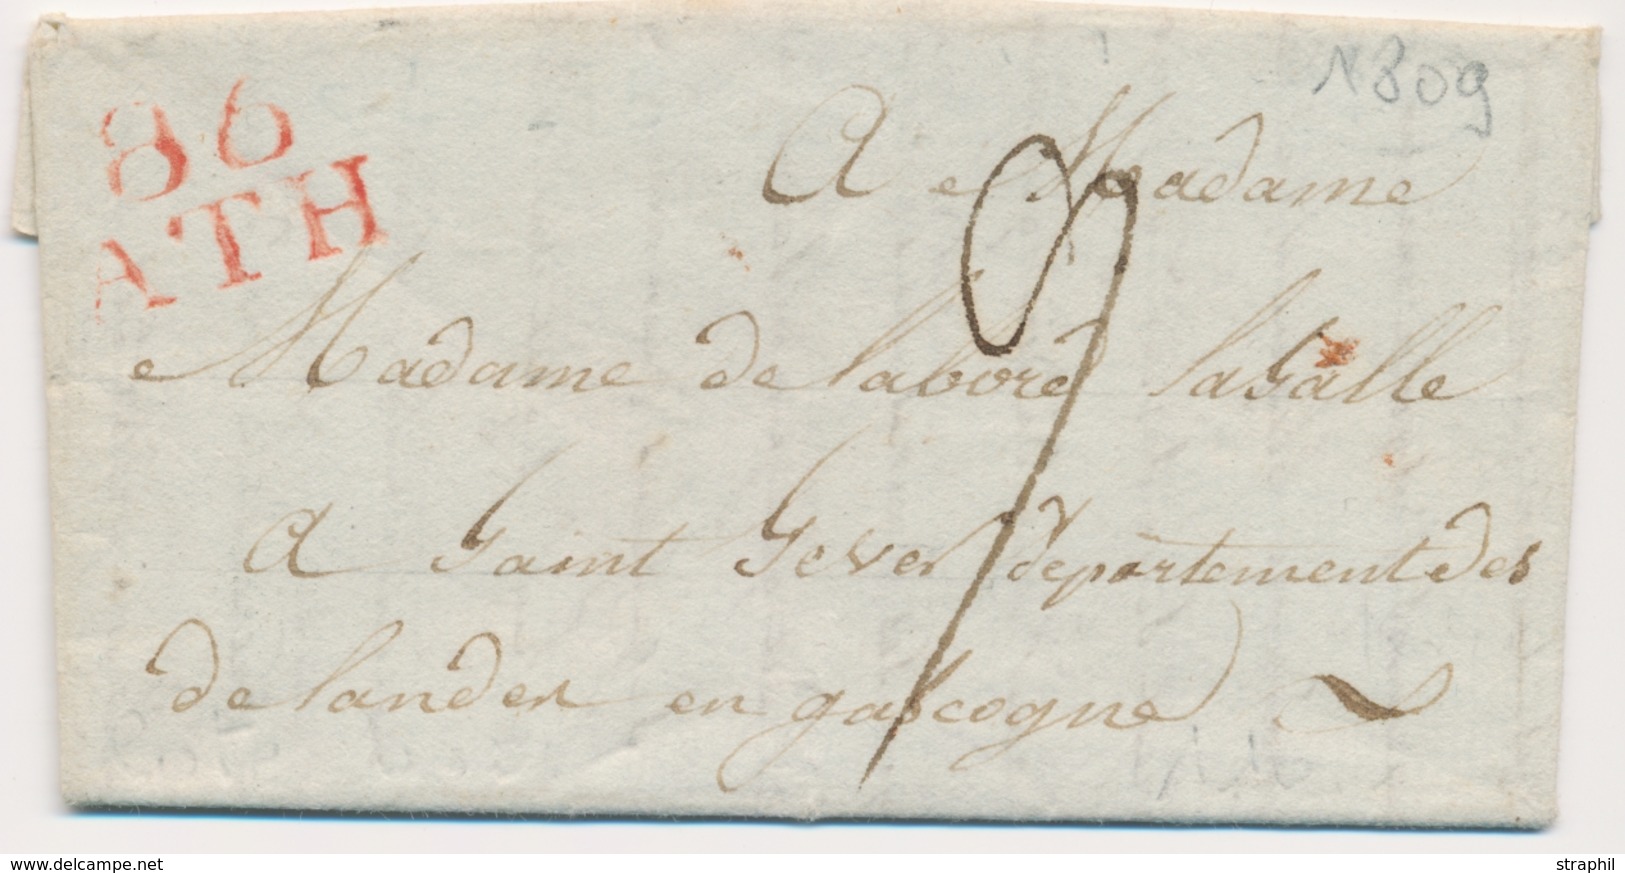 86
ATH
1809
A Madame
Madame de laborde lasalle
A Saint Sever departement des
de landes en gascogne
www.delcampe.net
straphil